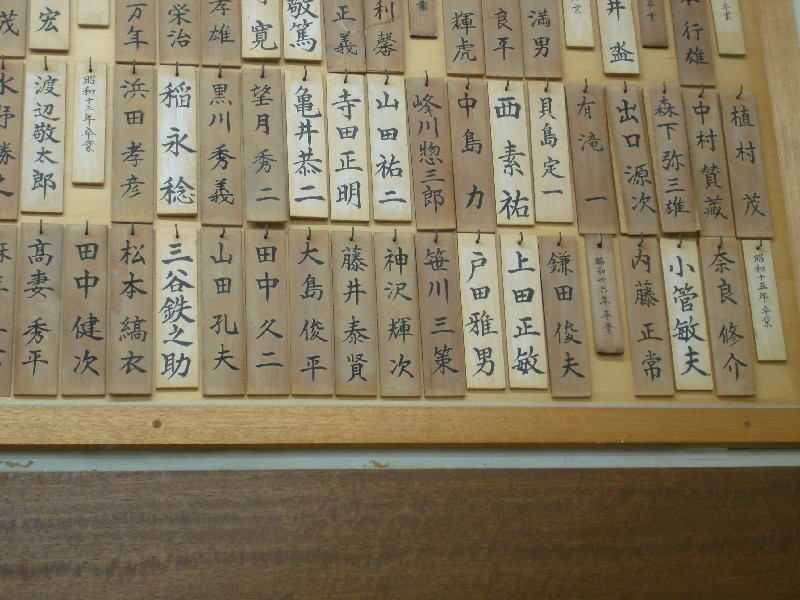 行雄
満男
良平
輝虎
利馨
正義
敬篤
寛
孝雄
栄治
万年
宏
茂
植村茂
中村賛蔵
森下弥三雄
出口源次
有滝一
貝島定一
西素祐
中島力
峰川惣三郎
山田祐二
寺田正明
亀井恭二
望月秀二
黒川秀義
稲永稔
浜田孝彦
昭和十三年卒業
渡辺敬太郎
昭和十五年卒業
奈良修介
小管敏夫
内藤正常
昭和十六年卒業
鎌田俊夫
上田正敏
戸田雅男
笹川三策
神沢輝次
藤井泰賢
大島俊平
田中久二
山田孔夫
三谷鉄之助
松本縞衣
田中健次
高妻秀平